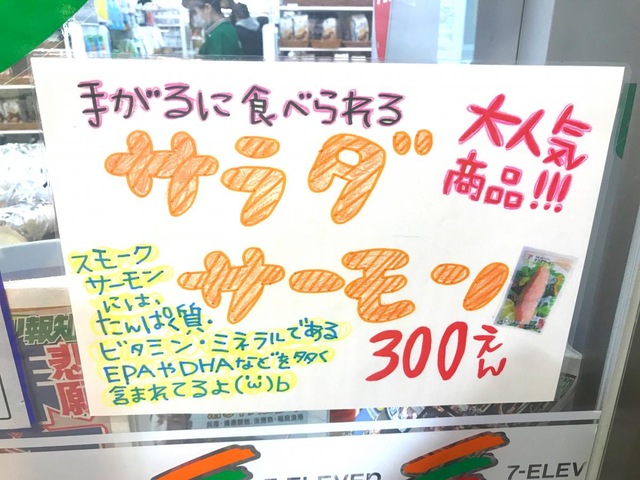 手がるに食べられる
サラダ
サーモン
大人気
商品!!!
スモーク
サーモン
には、
たんぱく質・
ビタミン・ミネラルである
EPAやDHAなどを多く
含まれてるよ(‘ω’)b
300えん
報知
悲願
7-ELEVEn
7-ELEV